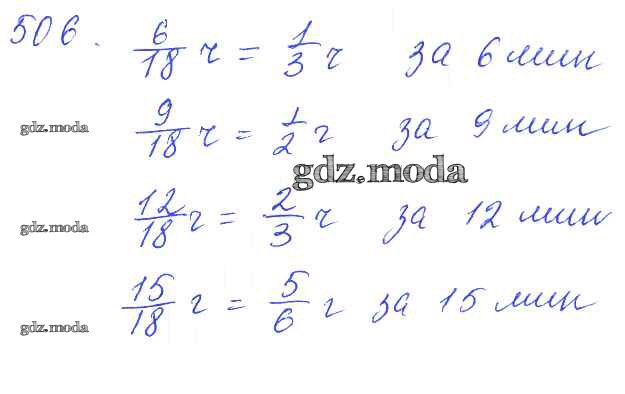 506.
6/18 ч = 1/3 ч за 6 мин
gdz.moda
9/18 ч = 1/2 ч за 9 мин
gdz.moda
12/18 ч = 2/3 ч за 12 мин
gdz.moda
15/18 ч = 5/6 ч за 15 мин
gdz.moda